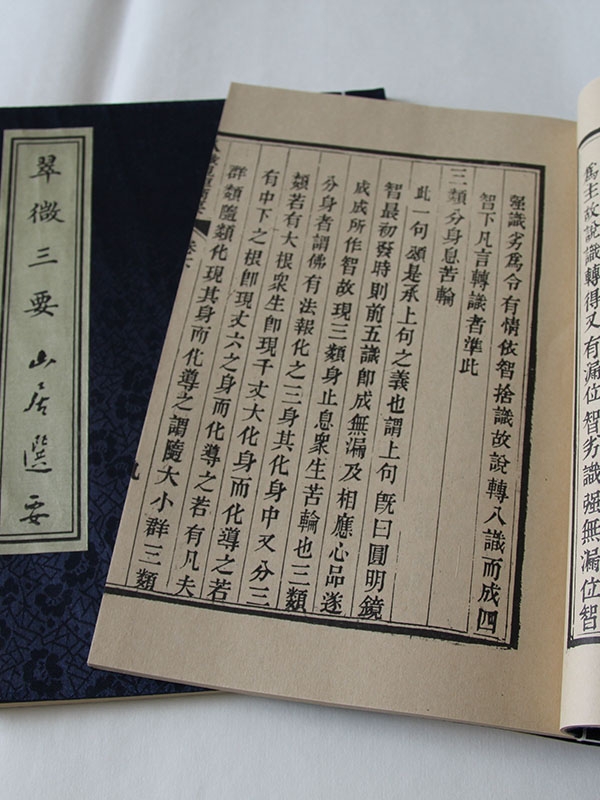 為主故說識轉得又有漏位智劣識强無漏位智
强識劣為令有情依智捨識故說轉八識而成四
智下凡言轉識者準此
三類分身息苦輪
此一句頌是承上句之義也謂上句旣曰圓明鏡
智最初發時則前五識卽成無漏及相應心品遂
成成所作智故現三類身止息衆生苦輪也三類
分身者謂佛有法報化之三身其化身中又分三
類若有大根衆生卽現千丈大化身而化導之若
有中下之根卽現丈六之身而化導之若有凡夫
群類隨類化現其身而化導之謂隨大小群三類
九
翠微三要 山居選要